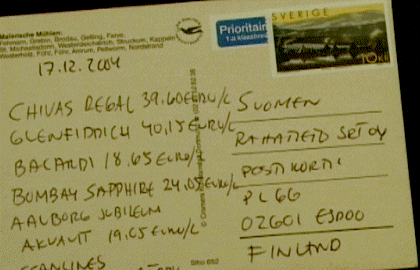 Malerische Mühlen:
Fehmarn, Grebin, Brodau, Gelting, Farve,
St. Michaelisdonn, Westerdeichstrich, Struckum, Kappeln
Westerholz, Föhr, Föhr, Amrum, Pellworm, Nordstrand
Prioritair
SVERIGE
10 KR
17.12.2004
CHIVAS REGAL 39.60 EURO/L
GLENFIDDICH 40,15 EURO/L
BACARDI 18.65 EURO/L
BOMBAY SAPPHIRE 24,05 EURO/L
AALBORG JUBILEUM
AKVAVIT 19,05 EURO/L
SCANLINES
SUOMEN
POSTIKORTTI
PL 66
02601 ESPOO
FINLAND